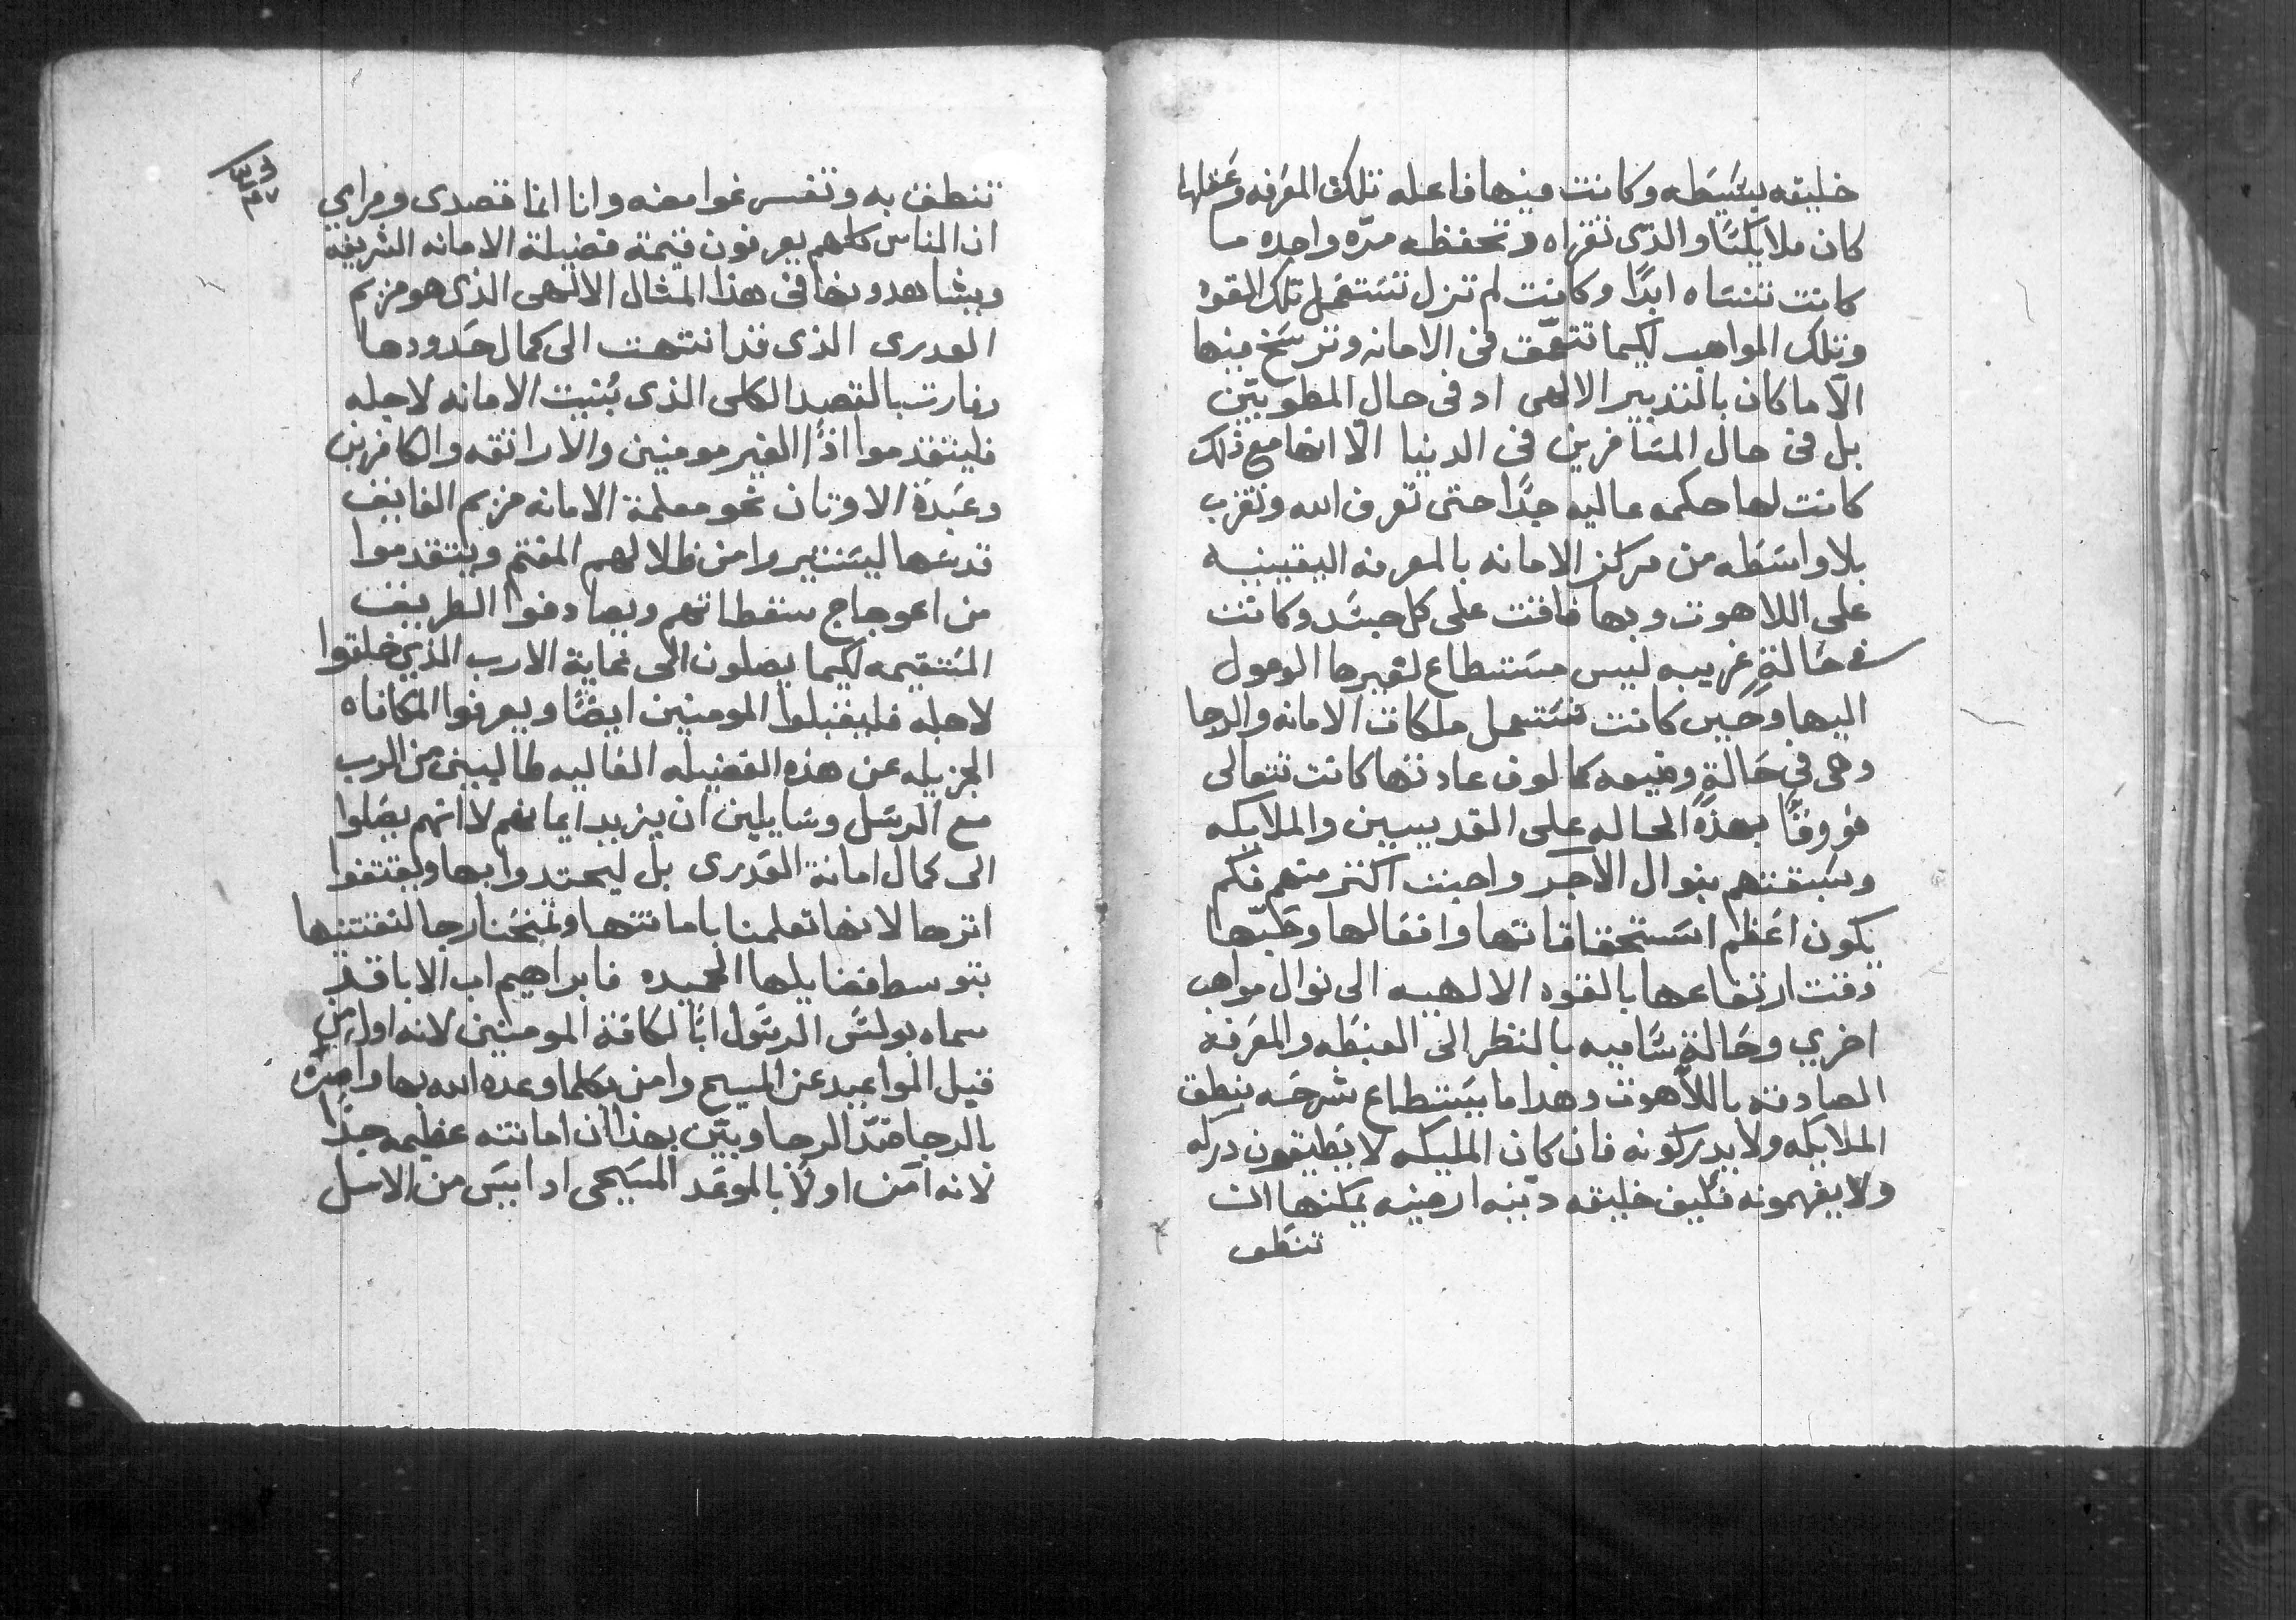 خليقه بسَيَطه وكانت فيها فاعله تلك المعَرفه وعَقلها
كان ملايكيًا والذى تقراه وتحفظه مرّه واحده ما
كانت تنسَاه ابدًا وكانت لم تزل تسَتعَمل تلك القوه
وتلك المواهب لكيما تتعَمّق فى الامانه وترسَخ فيها
الّا ما كان بالتدبير الالهى اد فى حال المطوبيّن
بل فى حال المسَافرين فى الدنيا الّا انها مع ذلك
كانت لها حكمه عاليه جدًا حتى تعرف الله وتقرب
بلا واسَطه من مركز الامانه بالمعرفه اليقينيه
على اللاهوت وبها فاقت على كل جسَد وكانت
فى حَالةٍ غريبه ليس مسَتطاع لغيرها الوصول
اليها وحَين كانت تسَتعمل ملكات الامانه والرجا
وهى فى حَالةٍ وضيعه كمالوف عادتها كانت تتعالى
فووقًا بهذَه الحاله على القديسين والملايكه
وسَبقتهم بنوال الاجر واحبت اكثر منهم فكم
يكون اعَظم اسَتحقاقاتها وافعَالها وحَبّها
وقت ارتفاعها بالقوه الالهيه الى نوال مواهب
اخري وحَالةٍ سَاميه بالنظر الى الغبطَه والمعَرفه
الصادقه باللّاهوت وهدا ما يسَتطاع شرحَه بنطق
الملايكه ولا يدركونه فان كان المليكه لا يطَيقون دركه
ولا يفهمونه فكيف خليقه دنيه ارضيه يمكنها ان
تنطَق
تنطق به وتفسر غوامضه وانا انما قصدى ومرادي
ان الناس كلهم يعرفون قيمة فضيلة الامانه الشريفه
ويشاهدونها فى هذا المثال الالهى الذى هو مريم
العدرى الذى قد انتهت الى كمال حَدودها
وفازت بالقصد الكلى الذى بُنيت الامانه لاجله
فليتقدموا اذًا الغير مومنين والاراتقه والكافرين
وعَبَدَة الاوتان نحو معلمة الامانه مريم الفايق
قدسَها ليسَتنيروا من ظلالهم المغتم ويتقدموا
من اعوجاج سقطاتهم ويصادفوا الطريق
المسَتقيمه لكيما يصلون الى نهاية الارب الذي خلقوا
لاجله فليقبلوا المومنين ايضًا ويعرفوا المكافاه
الجزيله عن هذه الفضيله الغاليه طالبين من الرب
مع الرسَل وسَايلين ان يزيد ايمانهم لا انهم يصَلوا
الى كمال امانة العَدرى بل ليهتدوا بها ويقتفوا
اترها لانها تعلمنا بامانتها وتمنحَنا رجا لنقتنيها
بتوسط فضايلها الحميده فابراهيم اب الابا قد
سماه بولسَ الرسَول ابًا لكافة المومنين لانه اول من
قبل المواعيد عن المسيح وامن بكلما وعده الله بها وامن
بالرجا ضدّ الرجا وبيّن بهذا ان امانته عظيمه جدًا
لانه آمن اولًا بالموعَد المسَيحى اد ايسَ من الامل